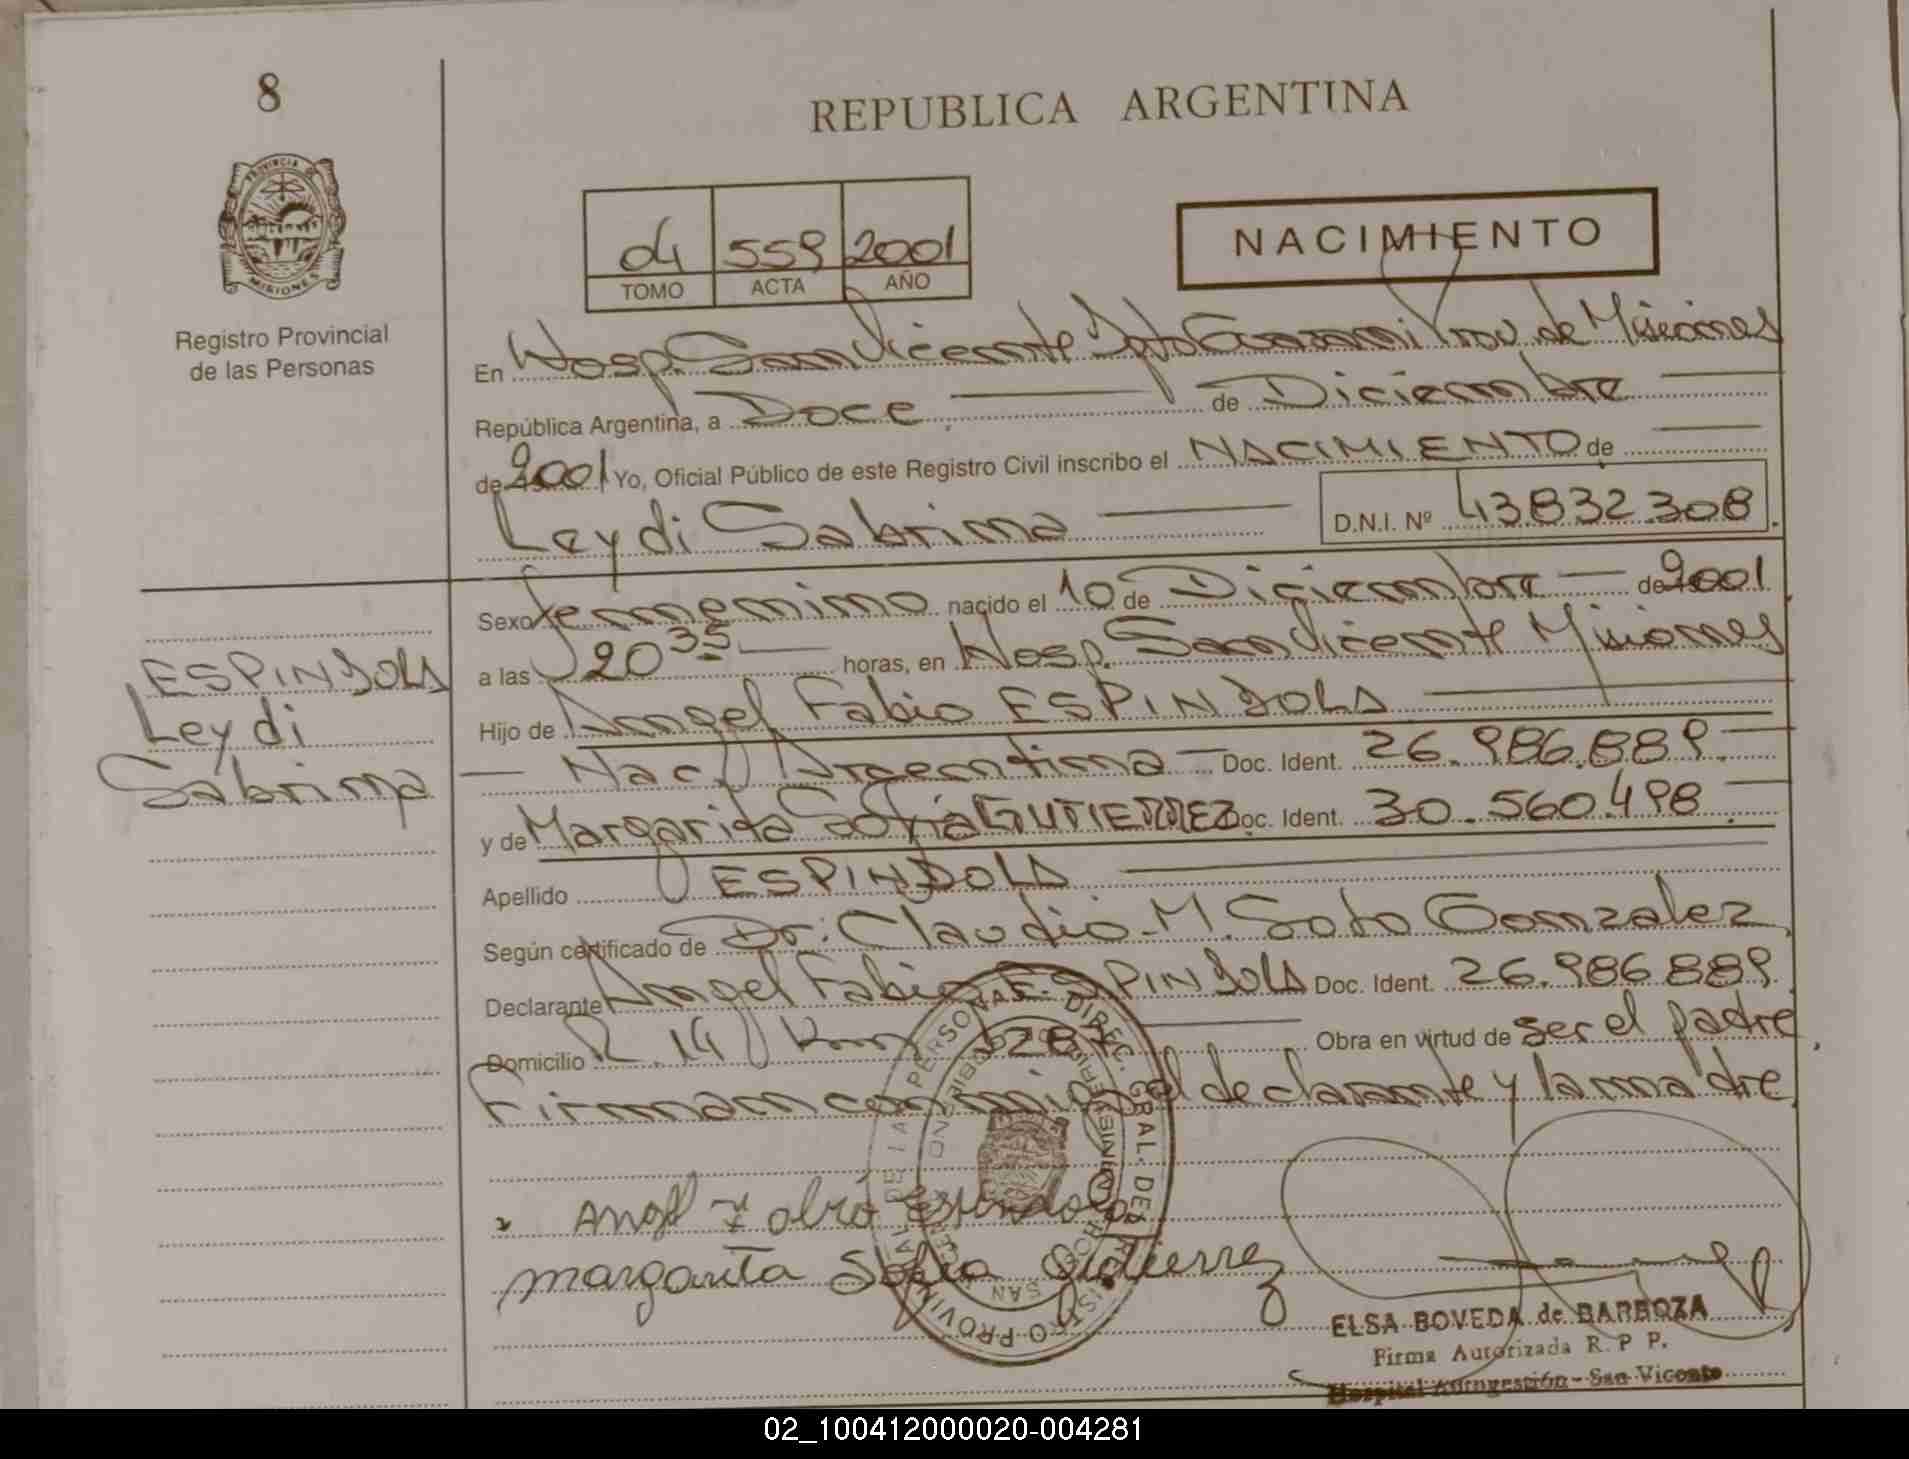 8
REPUBLICA ARGENTINA
PROVINCIA DE
MISIONES
Registro Provincial
de las Personas
04 559 2001
TOMO ACTA AÑO
NACIMIENTO
En Hosp. San Vicente Dpto Guaraní Prov. de Misiones
República Argentina, a Doce de Diciembre
de 2001 Yo, Oficial Público de este Registro Civil inscribo el NACIMIENTO de
Leydi Sabrina D.N.I. Nº 43832308
ESPINDOLA
Leydi
Sabrina
Sexo femenino nacido el 10 de Diciembre de 2001
a las 20 35 horas, en Hosp. San Vicente Misiones
Hijo de Angel Fabio ESPINDOLA
Nac. Argentina Doc. Ident. 26.986.889
y de Margarita Sofia GUTIERREZ Doc. Ident. 30.560.498
Apellido ESPINDOLA
Según certificado de Dr. Claudio M. Soto Gonzalez
Declarante Angel Fabio ESPINDOLA Doc. Ident. 26.986.889
Domicilio R. 14 Km 1281 Obra en virtud de ser el padre
Firman conmigo el declarante y la madre
Angel Fabio Espindola
margarita Sofia Gutierrez
ELSA BOVEDA de BARBOZA
Firma Autorizada R. P P.
Hospital Autogestión - San Vicente
02_100412000020-004281